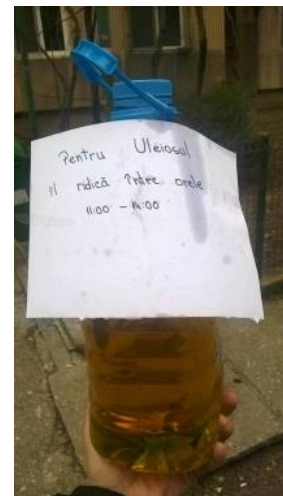 Pentru Uleiosul
îl ridică între orele
11:00 - 14:00